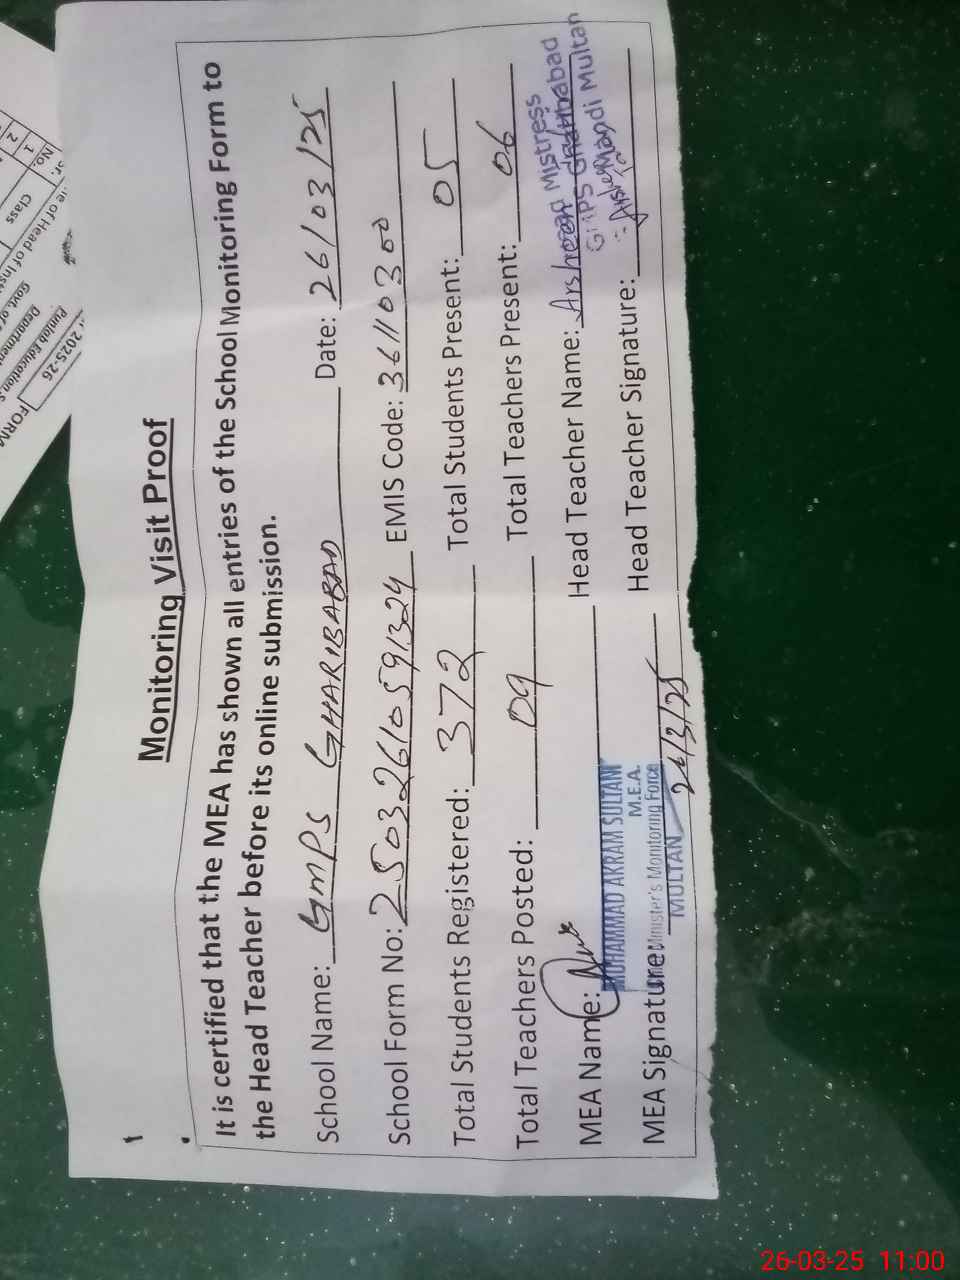 Monitoring Visit Proof
It is certified that the MEA has shown all entries of the School Monitoring Form to
the Head Teacher before its online submission.
School Name: GMPS GHARIBABAD Date: 26/03/25
School Form No: 2503261059 1324 EMIS Code: 36110300
Total Students Registered: 372 Total Students Present: 05
Total Teachers Posted: 09 Total Teachers Present: 06
MEA Name: Head Teacher Name:
MUHAMMAD AKRAM SULTANI
M.E.A.
Minister's Monitoring Force
MULTAN
Mistress
Mandi Multan
MEA Signature: Head Teacher Signature:
2025-26
FORM
Punjab Education
Department
Govt. of
of Head of Inst
Sr.
No.
Class
1
2
26-03-25 11:00